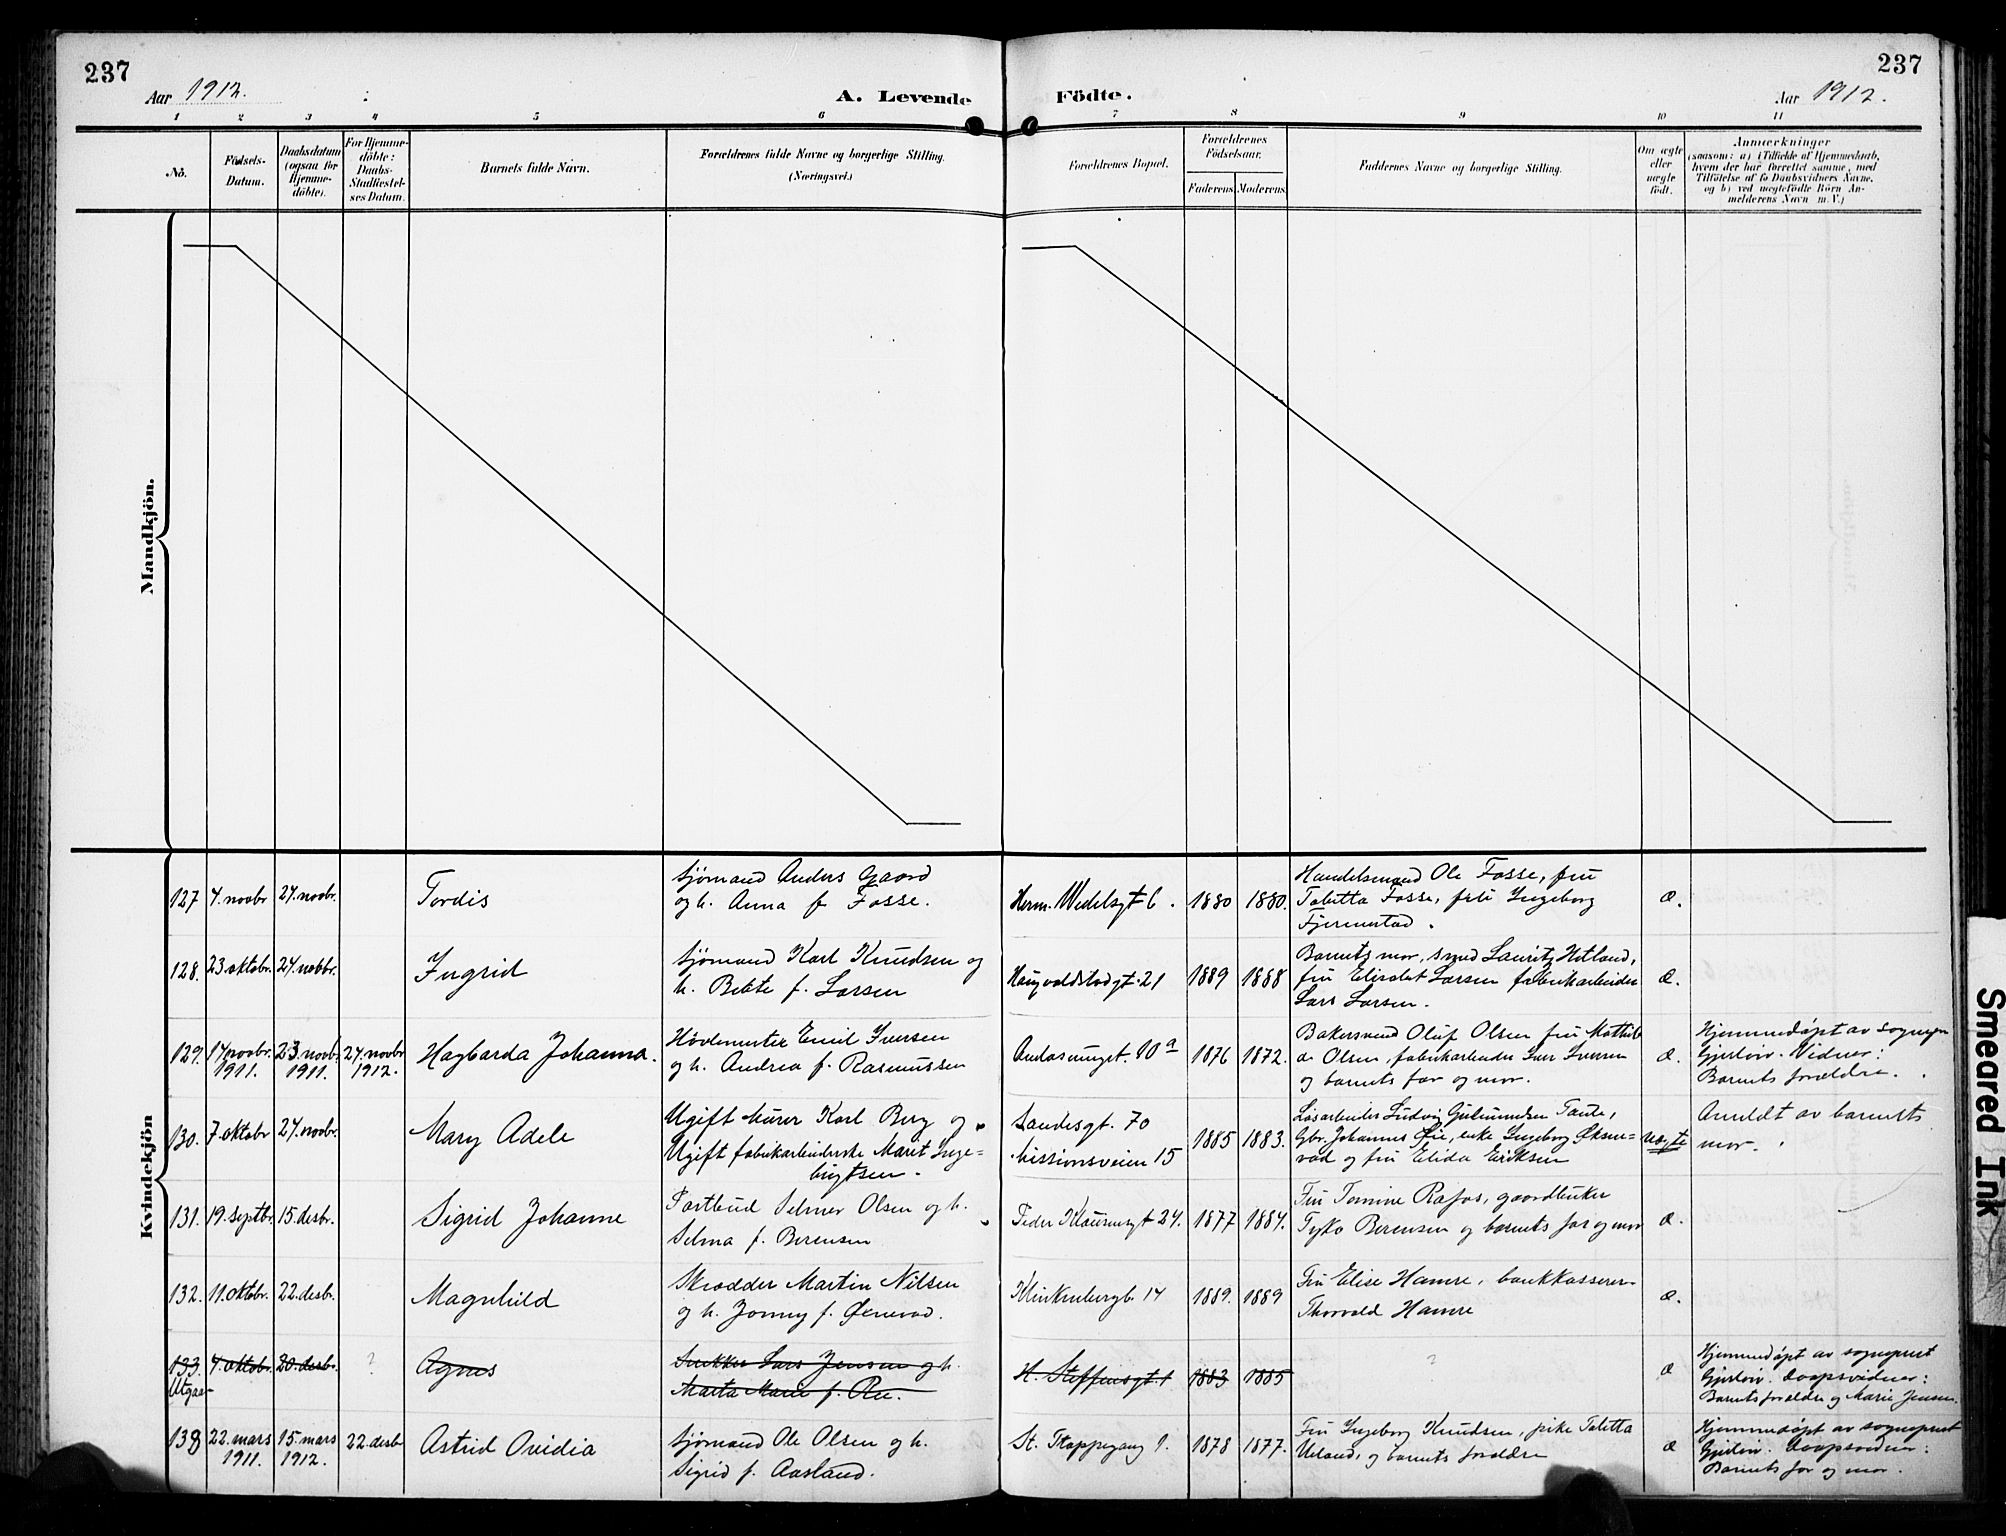 237
237
Aar 1912.
A. Levende Födte.
Aar 1912.
1 2 3 4 5 6 7 8 9 10 11
No.
Födsels-
Datum.
Daabsdatum
(ogsaa for
Hjemme-
döbte).
For Hjemme-
döbte:
Daabs-
Stadfæstel-
ses Datum.
Barnets fulde Navn.
Forældrenes fulde Navne og borgerlige Stilling.
(Næringsvei.)
Forældrenes Bopæl.
Forældrenes
Födselsaar.
Faderens Moderens
Faddernes Navne og borgerlige Stilling.
Om ægte
eller
uægte
födt.
Anmærkninger
(saasom: a) i Tilfælde af Hjemmedaab,
hvem der har forrettet samme, med
Tilföielse af to Daabsvidners Navne,
og b) ved uægtefödte Börn An-
melderens Navn m. V.)
Mandkjön.
Kvindekjön
127 4. novbr 24. novbr. Tordis
Sjømand Anders Gaard
og h. Anna f. Fosse.
Herm. Wedelsgt 6. 1880 1880.
Handelsmand Ole Fosse, fru
Toletta Fosse, frk. Ingeborg
Fjermestad.
Æ.
128. 23. oktobr. 24. novbr. Ingrid
Sjømand Karl Knudsen og
h. Bekte f. Larsen
Haugvaldstadgt. 21 1889 1888
Barnets mor, smed Lauritz Hetland,
fru Elisabet Larsen fabrikarbeider
Lars Larsen.
Æ.
129. 14 novbr. 1911. 23. novbr. 1911. 24. novbr. 1912. Hagbarda Johanna.
Hovlemester Emil Iversen
og h. Andrea f. Rasmussen
Andasmuget. 10 a 1876 1872.
Bakersvend Oluf Olsen fru Mathil-
de Olsen, fabrikarbeider Iver Iversen
og barnets far og mor.
Æ.
Hjemmedøpt av sogneprn
Gjerløw. Vidner:
Barnets forældre.
130. 7. oktobr 24. novbr. Mary Adele
Ugift murer Karl Berg og
Ugift fabrikarbeiderske Marit Inge-
brigtsen.
Sandesgt. 70
Missionsveien 15
1885 1883.
Løsarbeider Ludvig Gudmundsen Taule,
Gbr. Johannes Øie, enke Ingeborg Øksne-
vad og fru Elida Eriksen
Uægte
Anmeldt av barnets
mor.
131. 19. septbr. 15. desbr. Sigrid Johanne
Postbud Selmer Olsen og h.
Selma f. Berensen
Peder Klausensgt 24. 1877 1884.
Fru Tomine Rafos, gaardbruker
Tyko Berensen og barnets far og mor
Æ.
132. 11. oktobr. 22. desbr. Magnhild
Skrædder Martin Nilsen
og h. Jonny f. Øksnevad.
Klinkenberggt. 14 1889. 1889
Fru Elise Hamre, bankkasserer
Thorvald Hamre
Æ.
133 4. oktobr. 20. desbr. ? Agnes
Utgaar
Snekker Lars Jensen og h.
Marta Marie f. Ree.
H. Steffensgt. 1 1883 1885 ?
Æ
Hjemmedøpt av sogneprest
Gjerløw. Daapsvidner:
Barnets forældre og Marie Jensen.
133 22. mars 1911. 15. mars 1912. 22. desbr Astrid Ovidia
Sjømand Ole Olsen og h.
Sigrid f. Aasland.
St. Skappegang 9. 1878 1877.
Fru Ingeborg Knudsen, pike Toletta
Ueland, og barnets forældre
Æ
Hjemmedøpt av sogneprest
Gjerløw. Daapsvidner:
Barnets far og mor.
Smeared Ink